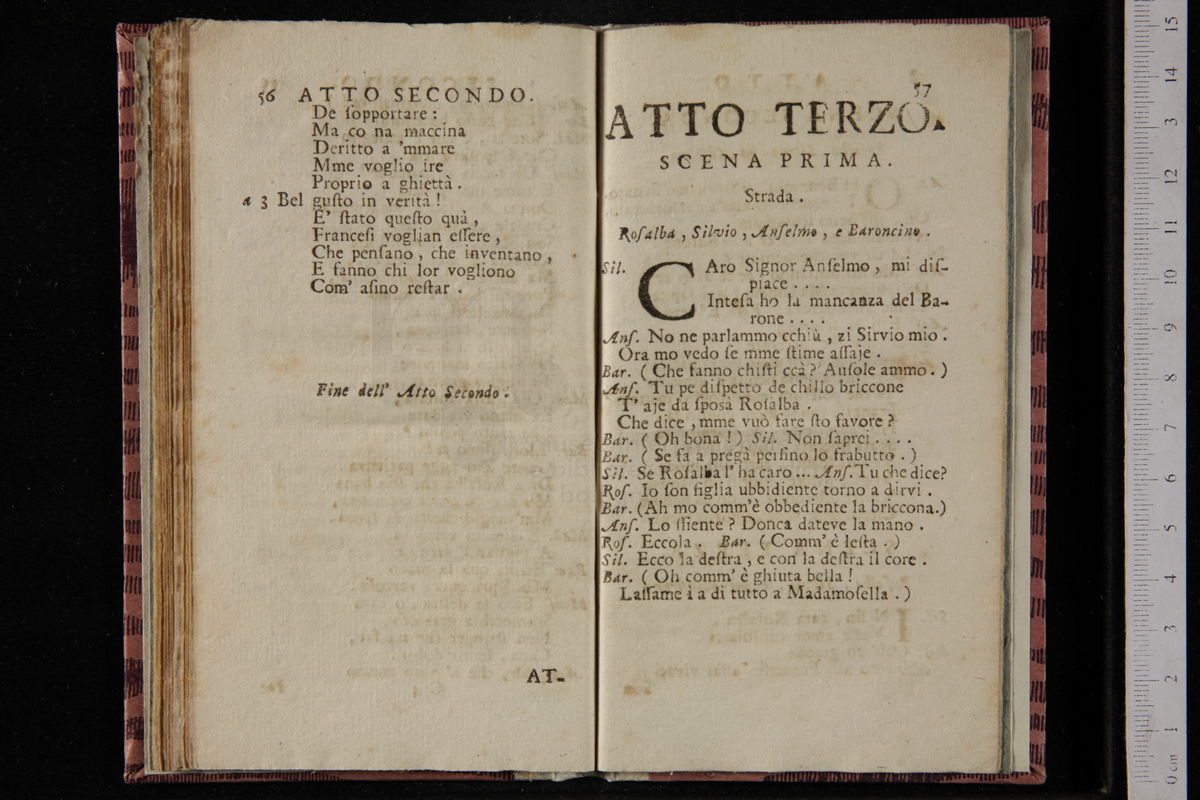 56 ATTO SECONDO.
De ſopportare :
Ma co na maccina
Deritto a 'mmare
Mme voglio ire
Proprio a ghiettà .
a 3 Bel guſto in verità !
E' ſtato queſto quà ,
Franceſi voglian eſſere ,
Che penſano , che inventano ,
E fanno chi lor vogliono
Com' aſino reſtar .
Fine dell' Atto Secondo .
AT-
57
ATTO TERZO.
SCENA PRIMA.
Strada .
Roſalba , Silvio , Anſelmo , e Baroncino .
Sil. CAro Signor Anſelmo , mi diſ-
piace . . . .
Inteſa ho la mancanza del Ba-
rone . . . .
Anſ. No ne parlammo cchiù , zi Sirvio mio .
Ora mo vedo ſe mme ſtime aſſaje .
Bar. ( Che fanno chiſti ccà ? Auſole ammo . )
Anſ. Tu pe diſpetto de chillo briccone
T' aje da ſposà Roſalba .
Che dice , mme vuò fare ſto favore ?
Bar. ( Oh bona ! ) Sil. Non ſaprei . . . .
Bar. ( Se fa a pregà perſino lo frabutto . )
Sil. Se Roſalba l' ha caro ... Anſ. Tu che dice?
Roſ. Io ſon figlia ubbidiente torno a dirvi .
Bar. (Ah mo comm'è obbediente la briccona.)
Anſ. Lo ſſiente ? Donca dateve la mano .
Roſ. Eccola . Bar. ( Comm' è leſta . )
Sil. Ecco la deſtra , e con la deſtra il core .
Bar. ( Oh comm' è ghiuta bella !
Laſſame ì a dì tutto a Madamoſella . )
0 cm 1 2 3 4 5 6 7 8 9 10 11 12 13 14 15